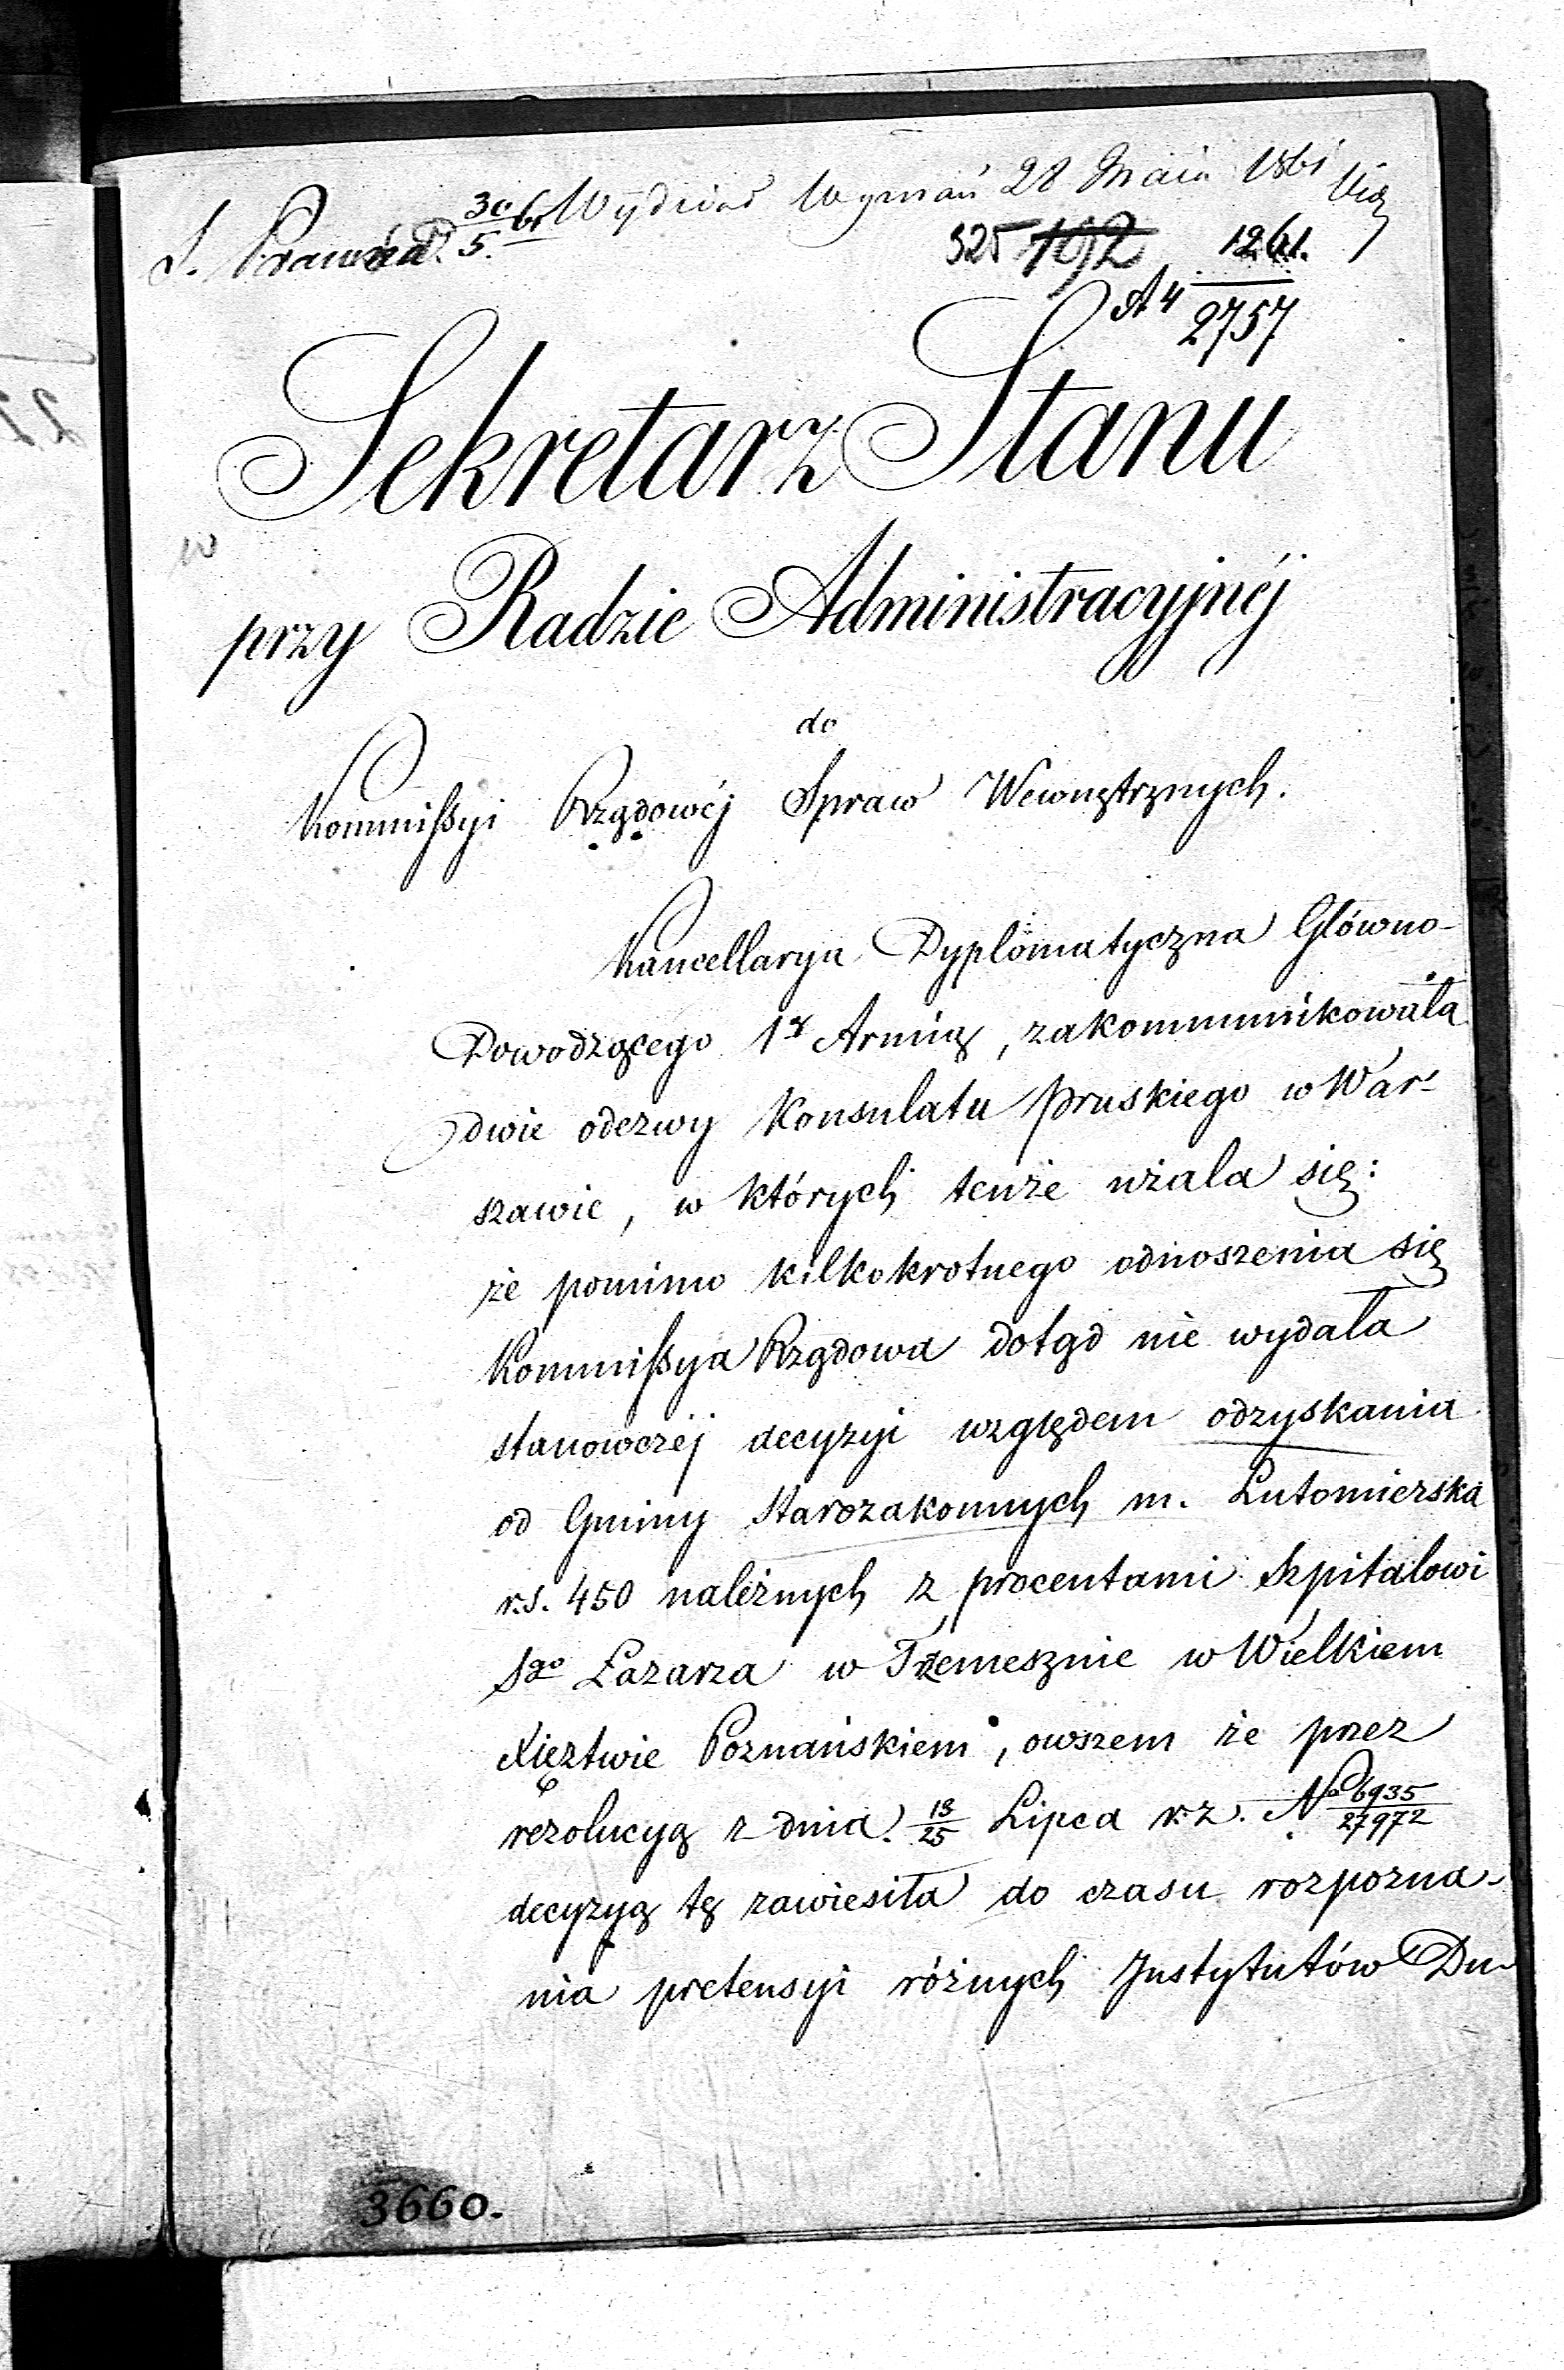 Wydział Wyznań 28 Maia 1861
S. Prawna 30/5 61
325 192 1261.
A4 2757
Sekretarz Stanu
przy Radzie Administracyjnéj
do
Kommissyi Rządowéj Spraw Wewnętrznych.
Kancellarya Dyplomatyczna Główno-
Dowodzącego 1ą Armią, zakommunikowała
dwie odezwy Konsulatu Pruskiego w War-
szawie, w których tenże użala się:
że pomimo kilkokrotnego odnoszenia się
Kommissya Rządowa dotąd nie wydała
stanowczéj decyzyi względem odzyskania
od Gminy Starozakonnych m. Lutomierska
r.s. 450 należnych z procentami Szpitalowi
Sgo Łazarza w Trzemesznie w Wielkiem
Xięztwie Poznańskiem, owszem że przez
rezolucyą z dnia 13/25 Lipca r. z. No 6935/27972
decyzyą tę zawiesiła do czasu rozpozna-
nia pretensyi różnych Instytutów Du-
3660.